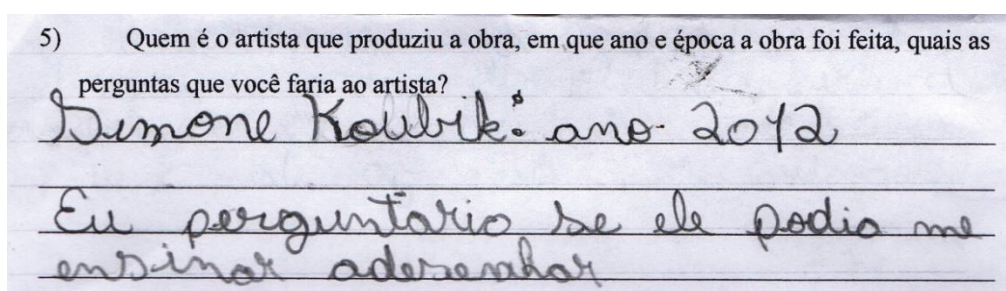 5) Quem é o artista que produziu a obra, em que ano e época a obra foi feita, quais as
perguntas que você faria ao artista?
Simone Koubik: ano 2012
Eu perguntario se ele podio me
ensinar adesenhar